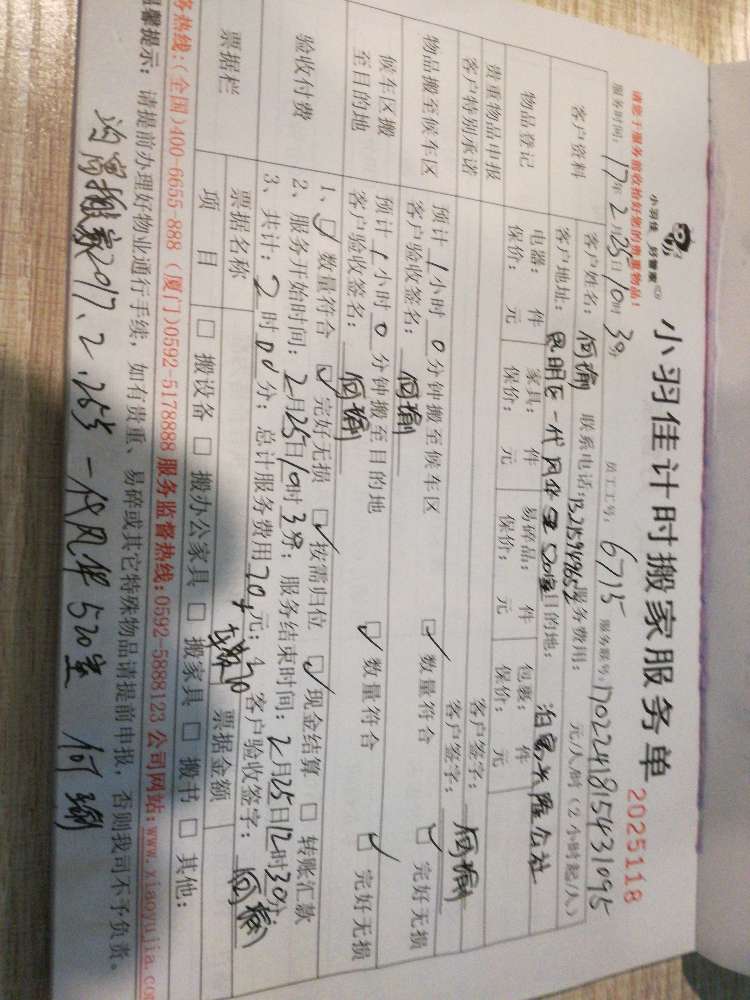 小羽佳 好管家
小羽佳计时搬家服务单
2025118
请您于服务前收拾好您的贵重物品！
服务时间：17年2月25日10时3分 员工工号：6715 服务账号：1702241815431095
客户资料
客户姓名：何瑜 联系电话： 服务费用： 元/人/时（2小时起/人）
客户地址：思明区一代风华 目的地：
物品登记
电器： 件 家具： 件 易碎品： 件 包裹： 件
保价： 元 保价： 元 保价： 元 保价： 元
贵重物品申报 客户签字：
客户特别承诺 客户签字：何瑜
物品搬至候车区
预计1小时0分钟搬至候车区 ☑数量符合 ☑完好无损
客户验收签名：何瑜
候车区搬至目的地
预计1小时0分钟搬至目的地 ☑数量符合 ☑完好无损
客户验收签名：何瑜
验收付费
1、☑数量符合 ☑完好无损 ☑按需归位 ☑现金结算 □转账汇款
2、服务开始时间：2月25日10时3分；服务结束时间：2月25日12时30分
3、共计：2时00分；总计服务费用 元；4、客户验收签字：何瑜
票据栏
票据名称 票据金额
项目 □搬设备 □搬办公家具 □搬家具 □搬书 □其他：
务热线：（全国）400-6655-888 （厦门）0592-5178888 服务监督热线：0592-5888123 公司网站：www.xiaoyujia.co
温馨提示：请提前办理好物业通行手续，如有贵重、易碎或其它特殊物品请提前申报，否则我司不予负责。
搬家2017.2.25 一代风华520室 何瑜